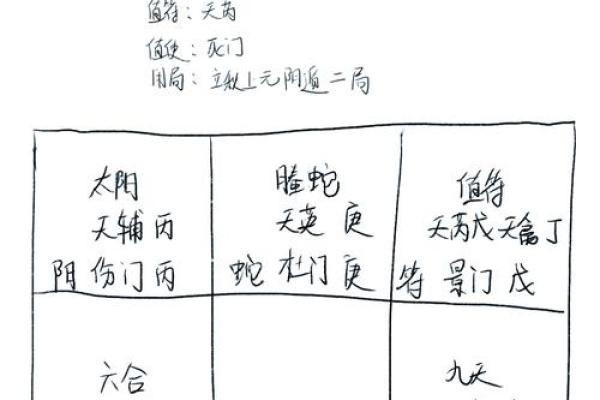 值符：天芮
值使：死门
用局：立秋上元阴遁二局
太阳
天辅 丙
阴 伤门 丙
螣蛇
天英 庚
蛇 杜门 庚
值符
天芮戊天禽丁
符 景门 戊
六合
九天